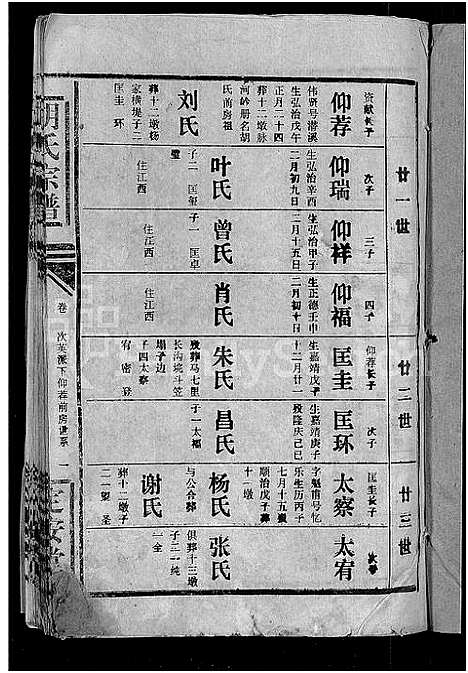 廿一世
资献长子
仰荐
伟贤号潜溪
生弘治戊午
正月二十四
葬十二墩脉
河岭册名胡
氏前房祖
刘氏
葬十二墩杨
家横堤子二
匡圭 环
次子
仰瑞
生弘治辛酉
二月初九日
叶氏
子二 匡玺
璧
住江西
三子
仰祥
生弘治甲子
二月十五日
曾氏
子一 匡卓
住江西
四子
仰福
生正德壬申
二月初十日
肖氏
住江西
廿二世
仰荐长子
匡圭
生嘉靖戊子
十二月廿一
朱氏
殁葬马七里
长沟境斗笠
塌子边
子四太察
宥 密 登
次子
匡环
生嘉靖庚子
殁隆庆己巳
昌氏
子一太福
廿三世
匡圭长子
太察
字魁甫号忆
乐生历丙子
七月十五殁
顺治戊子葬
十一墩
杨氏
与公合葬
谢氏
葬十二墩子
二一望 圣
次子
太宥
张氏
俱葬十三墩
子二一纯
一全
胡氏宗谱
卷
次英派下仰荐前房世系
一
定安堂